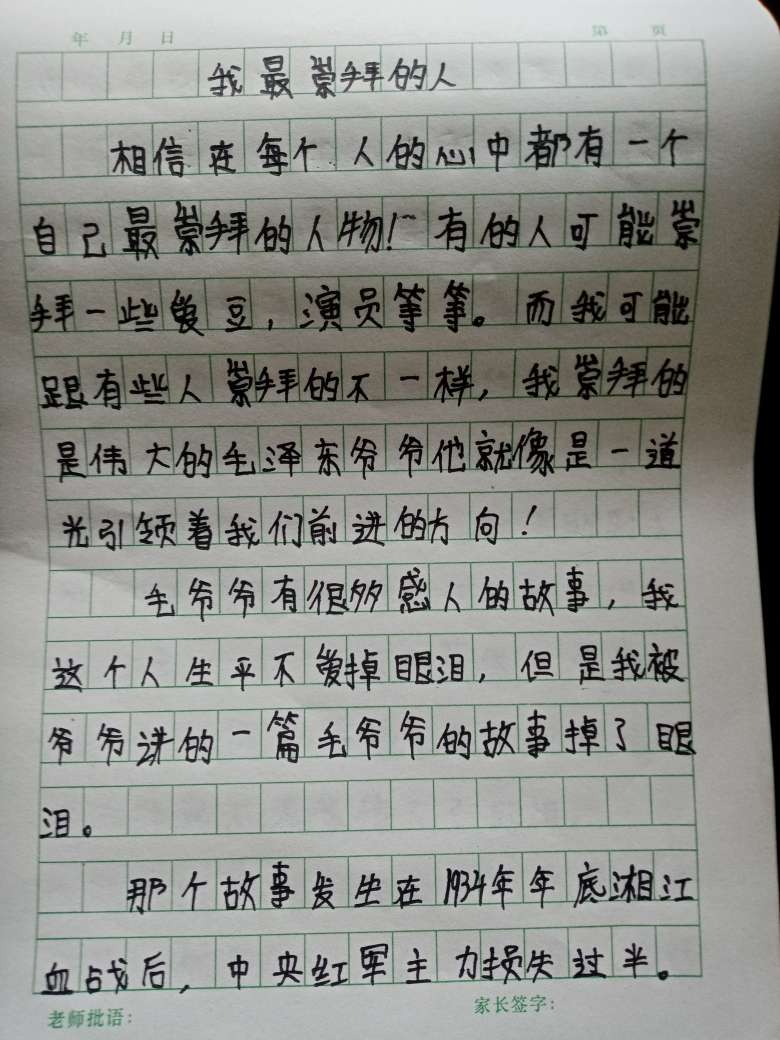 年 月 日 第 页
我最崇拜的人
相信在每个人的心中都有一个
自己最崇拜的人物！有的人可能崇
拜一些爱豆，演员等等。而我可能
跟有些人崇拜的不一样，我崇拜的
是伟大的毛泽东爷爷他就像是一道
光引领着我们前进的方向！
毛爷爷有很多感人的故事，我
这个人生平不爱掉眼泪，但是我被
爷爷讲的一篇毛爷爷的故事掉了眼
泪。
那个故事发生在1934年年底湘江
血战后，中央红军主力损失过半。
老师批语： 家长签字：